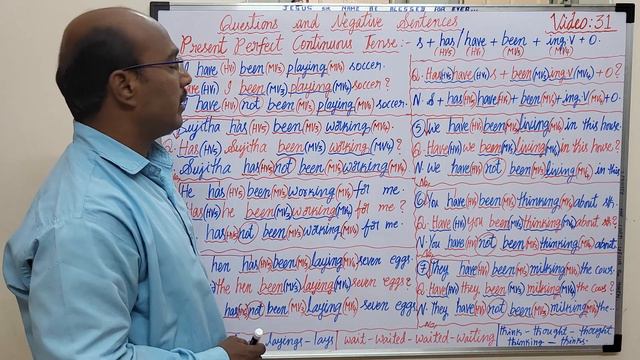 JESUS OR NAME BE BLESSED FOR EVER...
Questions and Negative Sentences
Video: 31
Present Perfect Continuous Tense:- s + has/have + been + ing.V + O.
(HV5) (HV1) (MV3) (MV4)
I have (HV1) been (MV3) playing (MV4) soccer.
I been (MV3) playing (MV4) soccer?
have (HV1) not been (MV3) playing (MV4) soccer.
Sujitha has (HV5) been (MV3) working (MV4).
Q. Has (HV5) Sujitha been (MV3) working (MV4)?
Sujitha has (HV5) not been (MV3) working (MV4)
He has (HV5) been (MV3) working (MV4) for me.
he been (MV3) working (MV4) for me?
has (HV5) not been (MV3) working (MV4) for me.
hen has (HV5) been (MV3) laying (MV4) seven eggs.
the hen been (MV3) laying (MV4) seven eggs?
has (HV5) not been (MV3) laying (MV4) seven eggs
Q. Has (HV5)/have (HV1) s + been (MV3) + ing.V (MV4) + O?
N. s + has (HV5)/have (HV1) + been (MV3) + ing.V (MV4) + O.
5 We have (HV1) been (MV3) living (MV4) in this house.
Q. Have (HV1) we been (MV3) living (MV4) in this house?
N. We have (HV1) not been (MV3) living (MV4) in this
6 You have (HV1) been (MV3) thinking (MV4) about
Q. Have (HV1) you been (MV3) thinking (MV4) about
N. You have (HV1) not been (MV3) thinking (MV4) about
7 They have (HV1) been (MV3) milking (MV4) the cows.
Q. Have (HV1) they been (MV3) milking (MV4) the cows?
N. They have (HV1) not been (MV3) milking (MV4) the
layings - lays
wait - waited - waited - waiting
think - thought - thought
thinking - thinks.